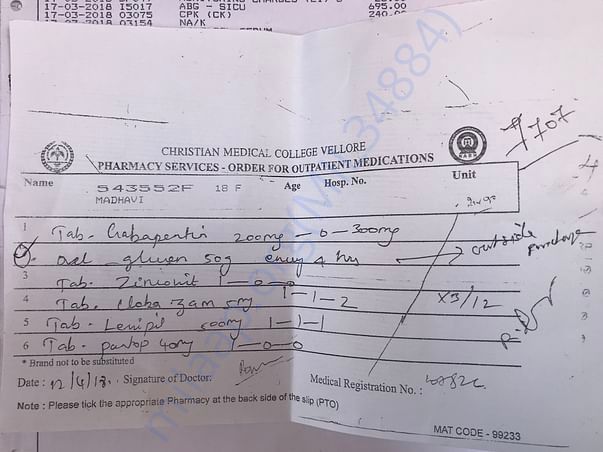 17-03-2018 15017 ABG - SICU 695.00
17-03-2018 03075 CPK (CK) 240.00
17-03-2018 03154 NA/K
CHRISTIAN MEDICAL COLLEGE VELLORE
PHARMACY SERVICES - ORDER FOR OUTPATIENT MEDICATIONS
7707
Name 543552F 18 F Age Hosp. No. Unit
MADHAVI
1 Tab. Gabapentin 200mg - 0 - 300mg
oral glucon 50g every 4 hrs → outside purchase
3 Tab. Zincovit 1-0-0
4 Tab. Clobazam 5mg 1-1-2 X3/12
5 Tab. Levipil 500mg 1-1-1
6 Tab. pantop 40mg 1-0-0
* Brand not to be substituted
Date : 12/4/18. Signature of Doctor: Medical Registration No. :
Note : Please tick the appropriate Pharmacy at the back side of the slip (PTO)
MAT CODE - 99233